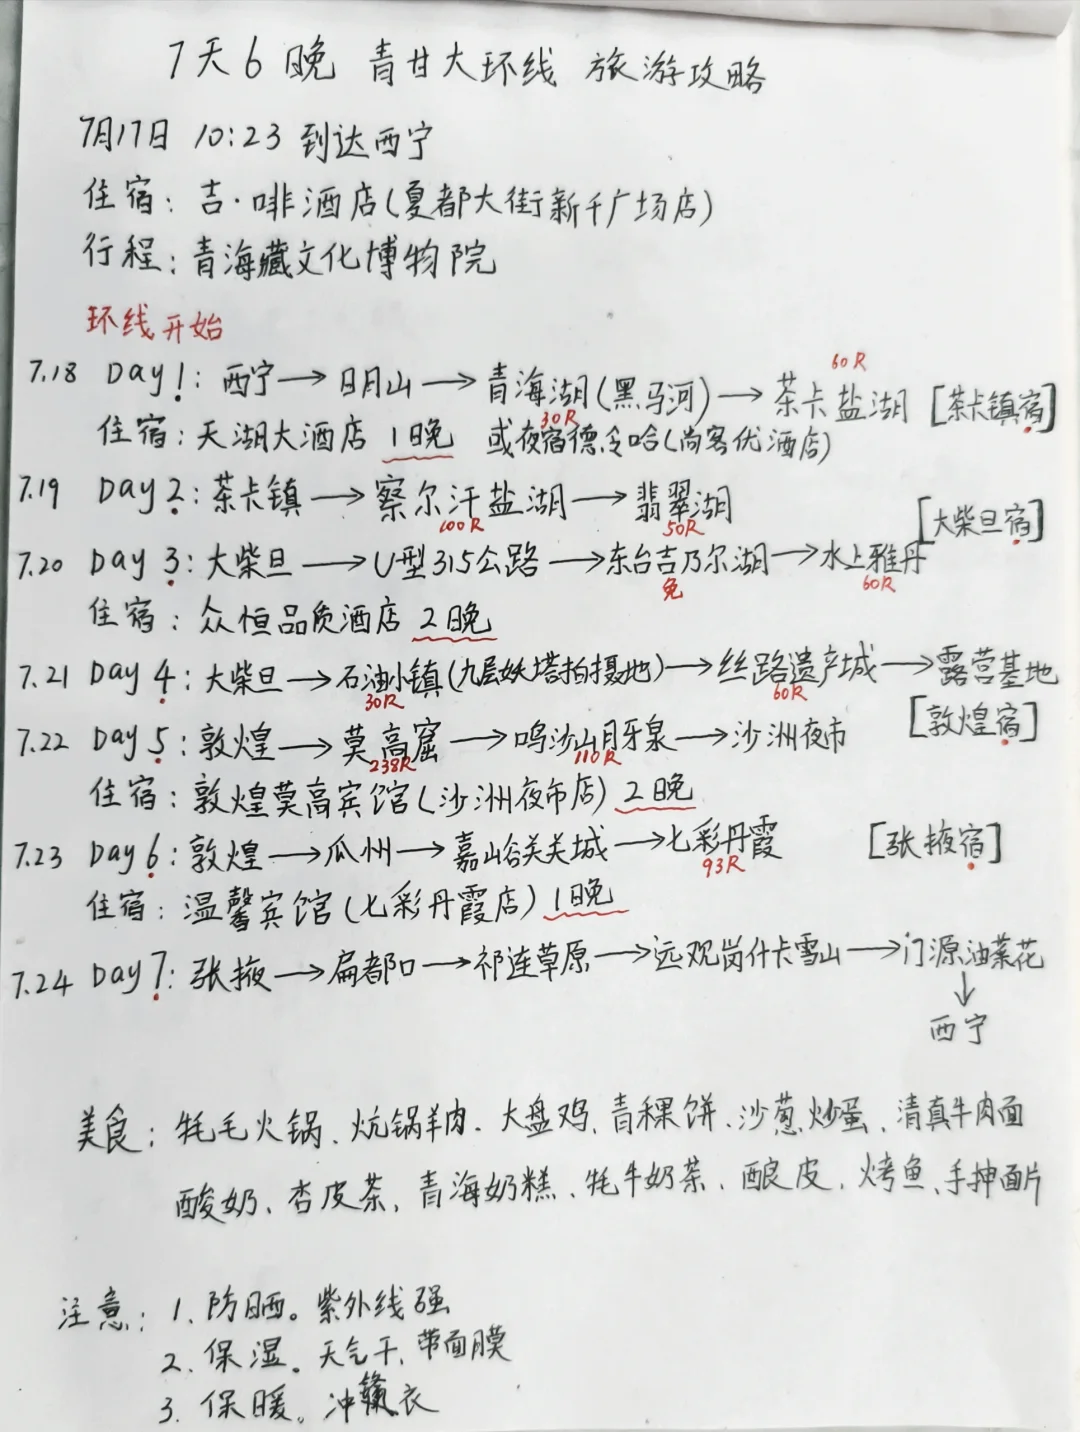 7天6晚 青甘大环线 旅游攻略
7月17日 10:23 到达西宁
住宿：吉·啡酒店(夏都大街新千广场店)
行程：青海藏文化博物院
环线开始
7.18 Day 1：西宁→日月山→青海湖(黑马河)→茶卡盐湖 [茶卡镇宿]
30R 60R
住宿：天湖大酒店 1晚 或夜宿德令哈(尚客优酒店)
7.19 Day 2：茶卡镇→察尔汗盐湖→翡翠湖 [大柴旦宿]
100R 50R
7.20 Day 3：大柴旦→U型315公路→东台吉乃尔湖→水上雅丹
免 60R
住宿：众恒品质酒店 2晚
7.21 Day 4：大柴旦→石油小镇(九层妖塔拍摄地)→丝路遗产城→露营基地
30R 60R
7.22 Day 5：敦煌→莫高窟→鸣沙山月牙泉→沙洲夜市 [敦煌宿]
238R 110R
住宿：敦煌莫高宾馆(沙洲夜市店) 2晚
7.23 Day 6：敦煌→瓜州→嘉峪关关城→七彩丹霞 [张掖宿]
93R
住宿：温馨宾馆(七彩丹霞店) 1晚
7.24 Day 7：张掖→扁都口→祁连草原→远观岗什卡雪山→门源油菜花
↓
西宁
美食：牦毛火锅、炕锅羊肉、大盘鸡、青稞饼、沙葱炒蛋、清真牛肉面
酸奶、杏皮茶、青海奶糕、牦牛奶茶、酿皮、烤鱼、手抻面片
注意：1. 防晒。紫外线强
2. 保湿。天气干，带面膜
3. 保暖。冲衣